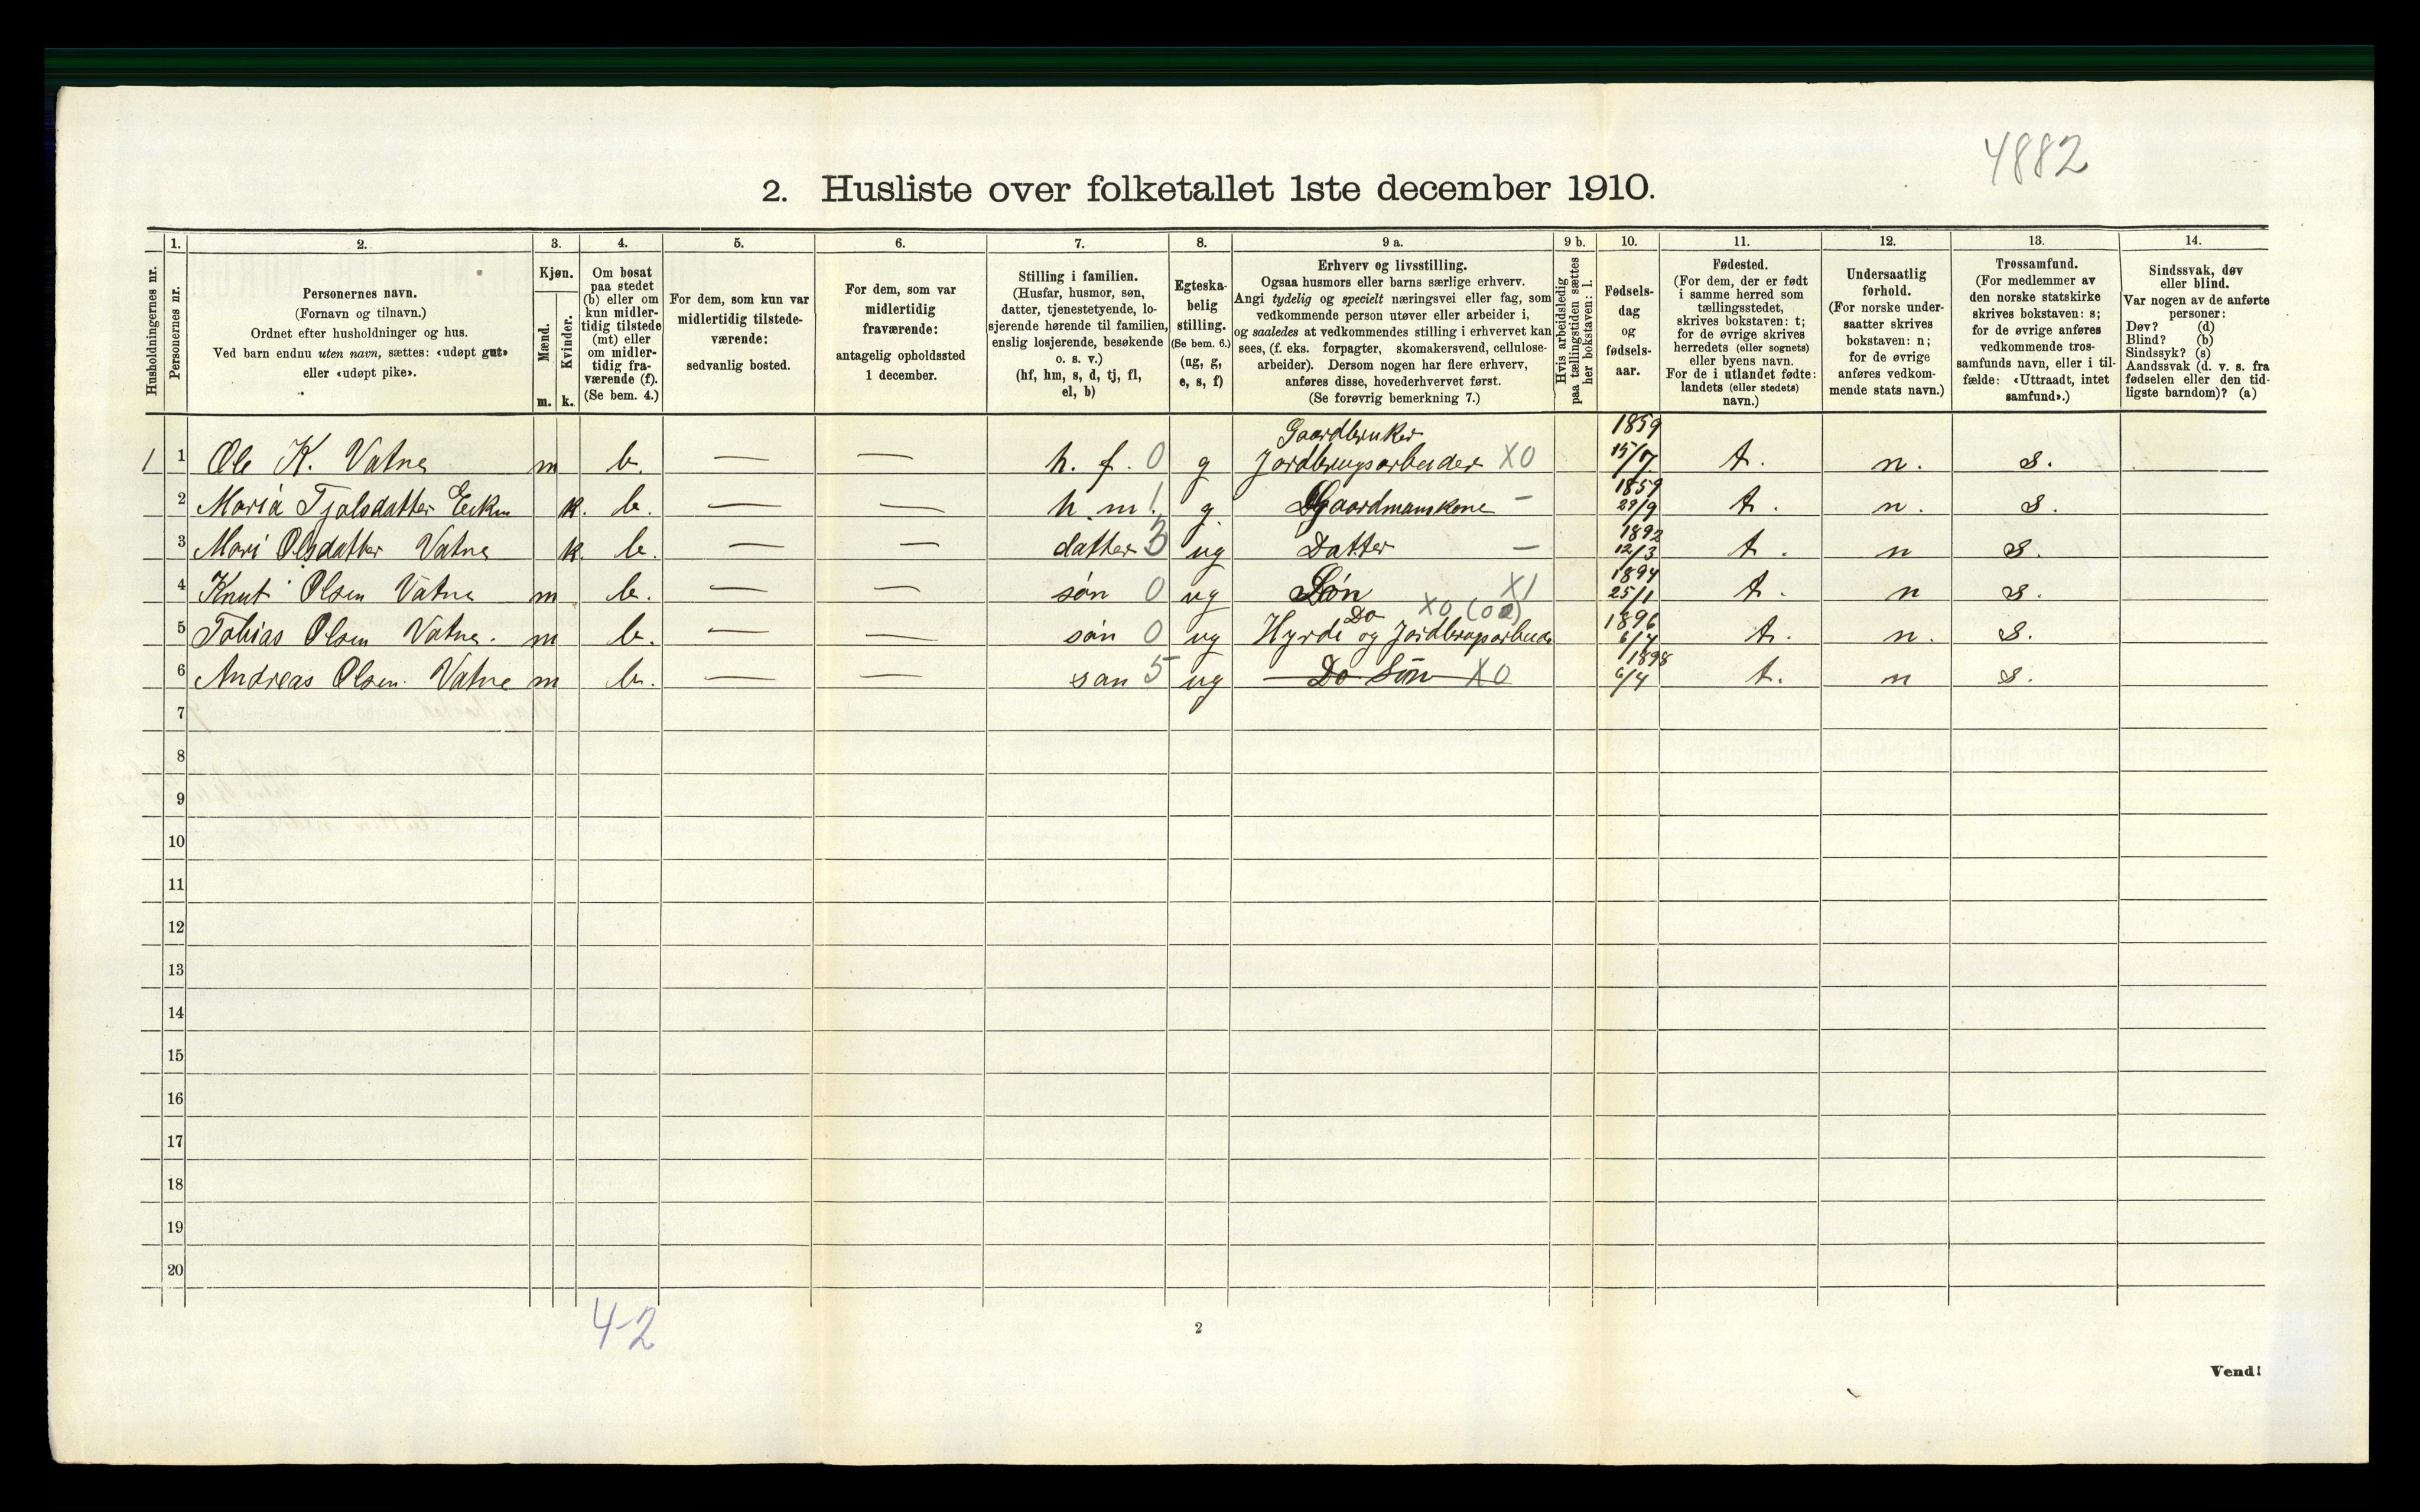 4882
2. Husliste over folketallet 1ste december 1910.
Husholdningernes nr.
1.
Personernes nr.
2.
Personernes navn.
(Fornavn og tilnavn.)
Ordnet efter husholdninger og hus.
Ved barn endnu uten navn, sættes: «udøpt gut»
eller «udøpt pike».
3.
Kjøn.
Mænd.
Kvinder.
m. k.
4.
Om bosat
paa stedet
(b) eller om
kun midler-
tidig tilstede
(mt) eller
om midler-
tidig fra-
værende (f).
(Se bem. 4.)
5.
For dem, som kun var
midlertidig tilstede-
værende:
sedvanlig bosted.
6.
For dem, som var
midlertidig
fraværende:
antagelig opholdssted
1 december.
7.
Stilling i familien.
(Husfar, husmor, søn,
datter, tjenestetyende, lo-
sjerende hørende til familien,
enslig losjerende, besøkende
o. s. v.)
(hf, hm, s, d, tj, fl,
el, b)
8.
Egteska-
belig
stilling.
(Se bem. 6.)
(ug, g,
e, s, f)
9 a.
Erhverv og livsstilling.
Ogsaa husmors eller barns særlige erhverv.
Angi tydelig og specielt næringsvei eller fag, som
vedkommende person utøver eller arbeider i,
og saaledes at vedkommendes stilling i erhvervet kan
sees, (f. eks. forpagter, skomakersvend, cellulose-
arbeider). Dersom nogen har flere erhverv,
anføres disse, hovederhvervet først.
(Se forøvrig bemerkning 7.)
9 b.
Hvis arbeidsledig
paa tællingstiden sættes
her bokstaven: l.
10.
Fødsels-
dag
og
fødsels-
aar.
11.
Fødested.
(For dem, der er født
i samme herred som
tællingsstedet,
skrives bokstaven: t;
for de øvrige skrives
herredets (eller sognets)
eller byens navn.
For de i utlandet fødte:
landets (eller stedets)
navn.)
12.
Undersaatlig
forhold.
(For norske under-
saatter skrives
bokstaven: n;
for de øvrige
anføres vedkom-
mende stats navn.)
13.
Trossamfund.
(For medlemmer av
den norske statskirke
skrives bokstaven: s;
for de øvrige anføres
vedkommende tros-
samfunds navn, eller i til-
fælde: «Uttraadt, intet
samfund».)
14.
Sindssvak, døv
eller blind.
Var nogen av de anførte
personer:
Døv? (d)
Blind? (b)
Sindssyk? (s)
Aandssvak (d. v. s. fra
fødselen eller den tid-
ligste barndom)? (a)
Gaardbruker 1859
1 1 Ole K. Vatne m b. — — h. f. 0 g Jordbrugsarbeider X0 15/7 t. n. s.
1859
2 Maria Tjølsdatter k. b. — — h. m. 1 g Gaardmanskone — 29/9 t. n. s.
1892
3 Mari Olsdatter Vatne k. b. — — datter 3 ug Datter — 12/3 t. n s.
1894
4 Knut Olsen Vatne m b. — — søn 0 ug Søn X1 25/1 t. n s.
Do X0 1896
5 Tobias Olsen Vatne. m b. — — søn 0 ug Hyrde og Jordbrugsarbeid 6/7 t. n. s.
1898
6 Andreas Olsen Vatne m b. — — søn 5 ug Do Søn X0 6/4 t. n s.
7
8
9
10
11
12
13
14
15
16
17
18
19
20
4-2
2
Vend!